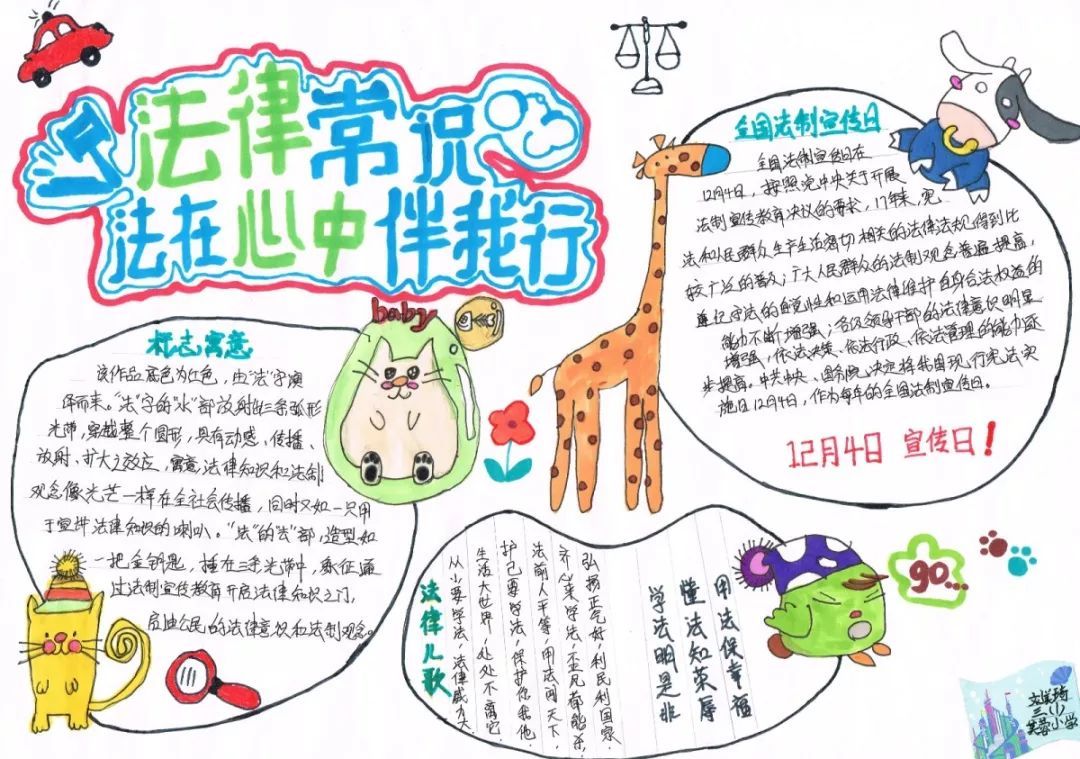 法律常识
法在心中伴我行
baby
标志寓意
该作品底色为红色，由“法”字演
绎而来。“法”字的“水”部放射的三条弧形
光带，穿越整个圆形，具有动感、传播、
放射、扩大之效应，寓意法律知识和法制
观念像光芒一样在全社会传播，同时又如一只用
于宣讲法律知识的喇叭。“法”的“去”部，造型如
一把金钥匙，插在三条光带中，象征通
过法制宣传教育开启法律知识之门，
启迪公民的法律意识和法制观念。
全国法制宣传日
全国法制宣传日在
12月4日，按照党中央关于开展
法制宣传教育决议的要求，17年来，宪
法和人民群众生产生活密切相关的法律法规得到比
较广泛的普及，广大人民群众的法制观念普遍提高，
遵纪守法的自觉性和运用法律维护自身合法权益的
能力不断增强；各级领导干部的法律意识明显
增强，依法决策、依法行政、依法管理的能力逐
步提高。中共中央、国务院决定将我国现行宪法实
施日12月4日，作为每年的全国法制宣传日。
12月4日 宣传日！
用法保幸福
懂法知荣辱
学法明是非
弘扬正气好，利民利国家.
齐心来学法，
法前人平等，用法闯天下，
护己要学法，保护你我他，
生活大世界，处处不离它
从小要学法，法律威力大.
法律儿歌
go...
三.(1)
芙蓉小学